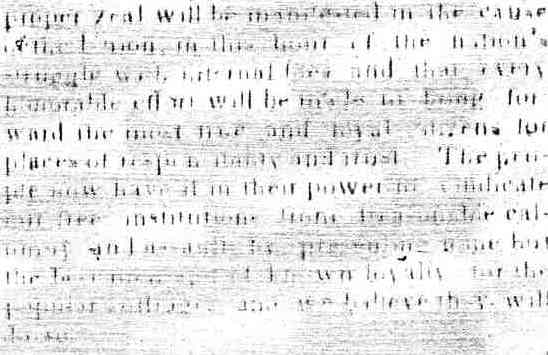 proper zeal will be manifested in the cause
of the Union, in this hour of the nation's
struggle with internal foes and that every
honorable effort will be made to bring for-
ward the most true and loyal citizens for
places of responsibility and trust. The peo-
ple now have it in their power to vindicate
our free institutions from treasonable
and by presenting none but
the best men of known loyalty for the
and we believe they will
do so.